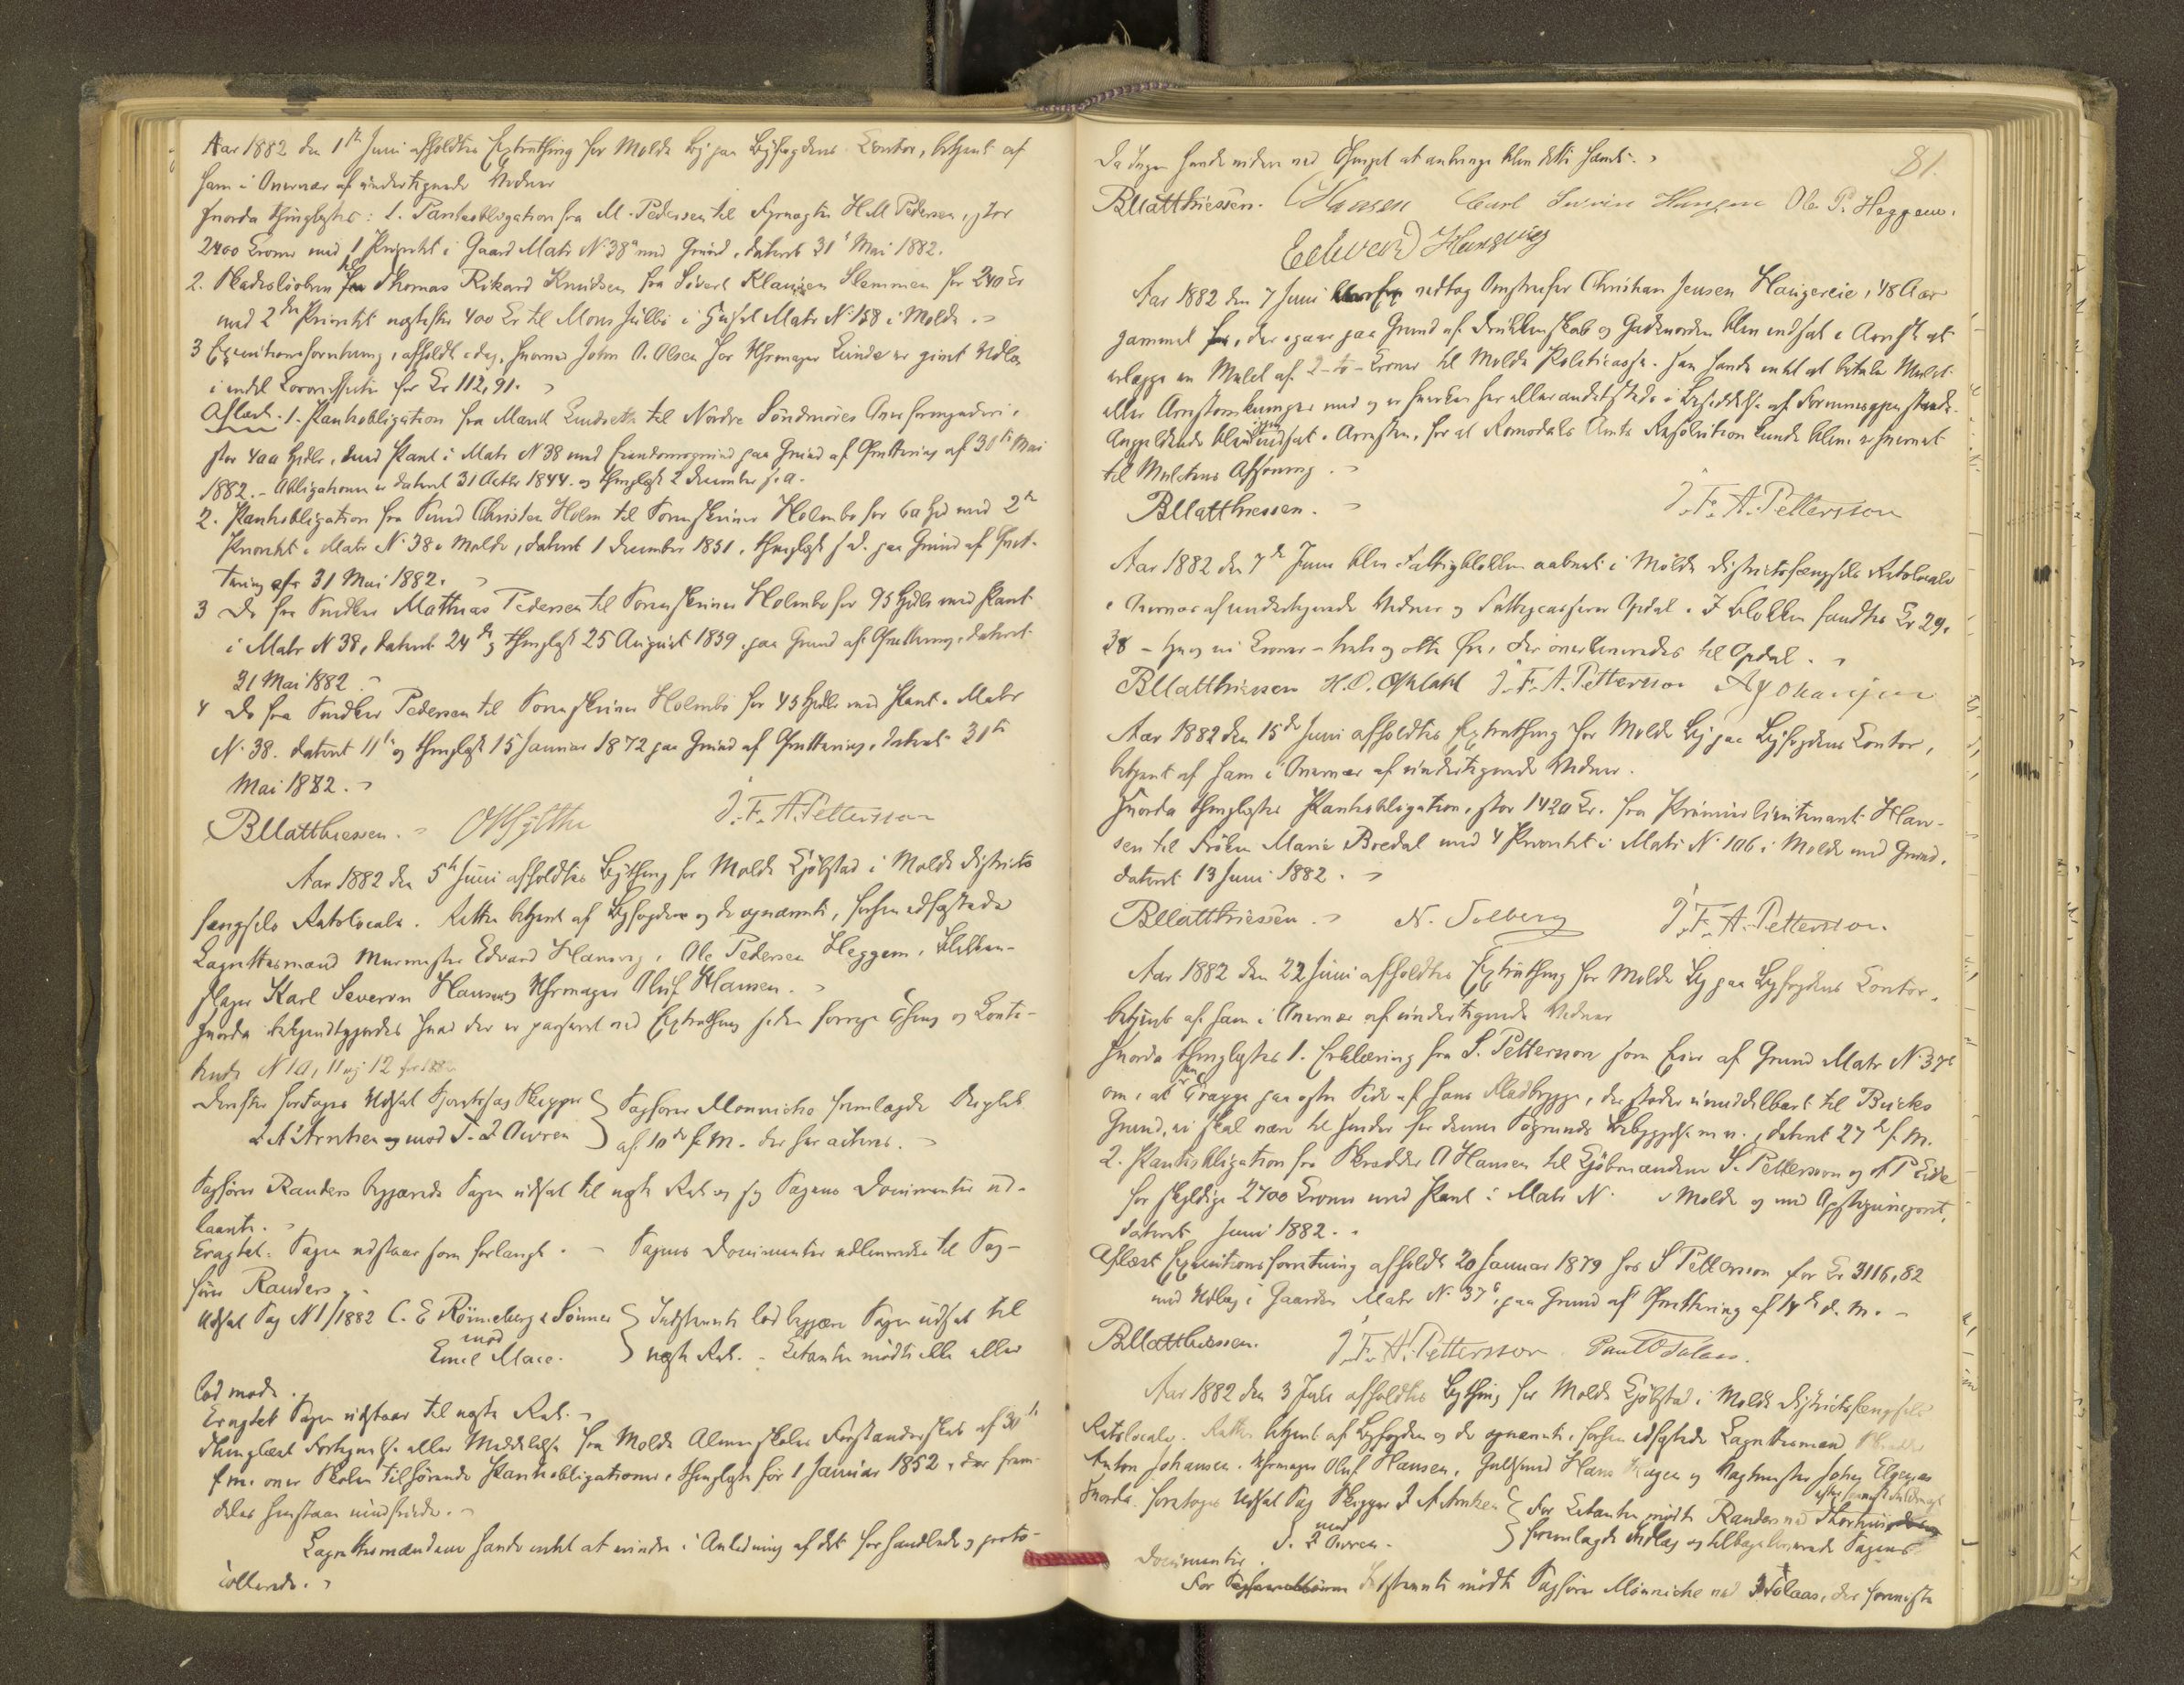 Aar 1882 den 1ste Juni afholdtes Extrathing for Molde By paa Byfogdens Contor, betjent af
ham i Overvær af undertegnede Vidner
Hvorda thinglystes: 1. Pantobligation fra M. Pedersen til H. M. Pedersen, stor
2400 Kroner med 1 Prioritet i Gaard Matr N. 38a med Grund, dateret 31te Mai 1882.
2. til Thomas Rikard Knudsen fra Sivert Klausen Slemmen for 240 Kr
med 2den Prioritet næstefter 400 Kr til Mons Julbø i Huset Matr N. 158 i Molde.
3 Executionsforretning, afholdt idag, hvorved John O. Olsen hos Uhrmager Lunde er givet Udlæg
i endel for Kr 112,91.
Aflæst. 1. Pantobligation fra Lindseth til Nordre Søndmøres Overformynderi,
stor 400 Spdlr, med Pant i Matr N 38 med paa Grund af Qvittering af 31te Mai
1882. - Obligationen er dateret 31 Octbr 1844 og thinglyst 2 December s. A.
2. Pantobligation fra Christen Holm til Sorenskriver Holmbo for 60 Spd med 2den
Prioritet i Matr N. 38 i Molde, dateret 1 December 1851, thinglyst s. D. paa Grund af Qvit-
tering af 31 Mai 1882.
3 Do fra Snedker Mathias Pedersen til Sorenskriver Holmbo for 95 Spdlr med Pant
i Matr N 38, dateret 24de og thinglyst 25 August 1859, paa Grund af Qvittering, dateret
31 Mai 1882.
4 Do fra Snedker Pedersen til Sorenskriver Holmbo for 45 Spdlr med Pant i Matr
N. 38. dateret 11te og thinglyst 15 Januar 1872 paa Grund af Qvittering, dateret 31te
Mai 1882.
B Matthiessen. J. F. A. Pettersson
Aar 1882 den 5te Juni afholdtes Bything for Molde Kjøbstad i Molde Districts
fængsels Retslocale. Retten betjent af Byfogden og de opnævnte, forhen edfæstede
Lagrettesmænd Murmester Edvard Hansvig, Ole Pedersen Heggem, Blikken-
slager Karl Severin Hansen og Uhrmager Oluf Hansen.
Hvorda bekjendtgjordes hvad der er passeret ved Extrathing siden forrige Thing og
N 10, 11 og 12 for 1882
Derefter foretoges Udsat Skipper } Sagfører Monniche fremlagde Indlæg
J. A. Arntzen mod T. J. Owren } af 10de f. M. der her acteres.
Sagfører Randers begjærede Sagen udsat til næste Ret og sig Sagens Documenter ud-
laante.
Eragtet: Sagen udstaar som forlangt. - Sagens Documenter udleveredes til Sag-
fører Randers.
Udsat Sag N 1/1882 C. E. Rønneberg & Sønner } Indstevnte lod begjære Sagen udsat til
mod
Emil Mace. } næste Ret. - Citanten mødte ikke eller
lod møde.
Eragtet Sagen udstaar til næste Ret.
Thinglæst Fortegnelse eller Meddelelse fra Molde Almueskoles Forstanderskab af 30te
f. M. over Skolen tilhørende Pantobligationer, thinglyste før 1 Januar 1852, der frem-
deles henstaar uindfriede.
Lagrettesmændene havde intet at erindre i Anledning af det forhandlede og proto-
collerede.
81.
Da Ingen havde videre ved Thinget at anbringe blev dette hævet.
B Matthiessen. Hansen Carl Severin Hansen Ole P. Heggem.
Edvard Hansvig
Aar 1882 den 7 Juni vedtog Christian Jensen Haugereie, 48 Aar
gammel, der igaar paa Grund af Drukkenskab og Gadeuorden blev indsat i Arresten at
erlægge en Mulct af 2 - to - Kroner til Molde Politicasse. Han havde intet at betale Mulct
eller Arrestomkostninger med og er hverken her eller andetsteds i Besiddelse af Formuesgjenstande.
Angjeldende blev igjen indsat i Arresten, for at Romsdals Amts Resolution kunde blive erhvervet
til Mulctens Afsoning.
B Matthiessen. J. F. A. Pettersson
Aar 1882 den 7de Juni blev Fattigblokken aabnet i Molde Districtsfængsels Retslocale
i Overvær af undertegnede Vidner og Fattigcasserer Opdal. I Blokken fandtes Kr 29,
38 - tyve ni Kroner - treti og otte Øre, der overleveredes til Opdal.
B Matthiessen H. O. Opdahl J. F. A. Pettersson A Johansen
Aar 1882 den 15de Juni afholdtes Extrathing for Molde By paa Byfogdens Contor,
betjent af ham i Overvær af undertegnede Vidner.
Hvorda thinglystes Pantobligation, stor 1420 Kr. fra Premierlieutenant Han-
sen til Frøken Marie Bredal med 4 Prioritet i Matr N. 106 i Molde med Grund,
dateret 13 Juni 1882.
B Matthiessen. N. Solberg J. F. A. Pettersson.
Aar 1882 den 22 Juni afholdtes Extrathing for Molde By paa Byfogdens Contor,
betjent af ham i Overvær af undertegnede Vidner
Hvorda thinglystes 1. Erklæring fra S. Pettersson som Eier af Grund Matr N. 37
om, at paa østre Side af hans Madbrygge, der støder umiddelbart til Bucks
Grund, ei skal være til Hinder for dennes Søgrunds Bebyggelse m. v., dateret 27de f. M.
2. Pantobligation fra Skrædder O Hansen til Kjøbmændene S. Pettersson og P Eide
for skyldige 2700 Kroner med Pant i Matr N. i Molde og med
dateret Juni 1882.
Aflæst Executionsforretning afholdt 20 Januar 1879 hos S Pettersson for Kr 3116,82
med Udlæg i Gaarden Matr N. 37, paa Grund af Qvittering af 14de d. M. -
B Matthiessen. J. F. A. Pettersson.
Aar 1882 den 3 Juli afholdtes Bything for Molde Kjøbstad i Molde Districtsfængsels
Retslocale. Retten betjent af Byfogden og de opnævnte, forhen edfæstede Lagrettesmænd
Anton Johansen, Uhrmager Oluf Hansen, Guldsmed Hans og Johan Elgenes
Hvorda foretoges Udsat Sag Skipper J A Arntzen } For Citanten mødte Randers ved
mod
T. J. Owren. } fremlagde Indlæg og tilbageleverede Sagens
Documenter.
For Indstevnte mødte Sagfører Monniche ved Solaas, der